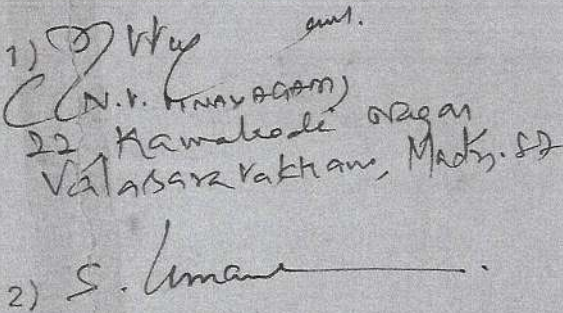 1)
(N.V. VINAYAGAM)
22, Kamakode Nagar
Valasaravakkam, Mads. 87
2) S. Uma